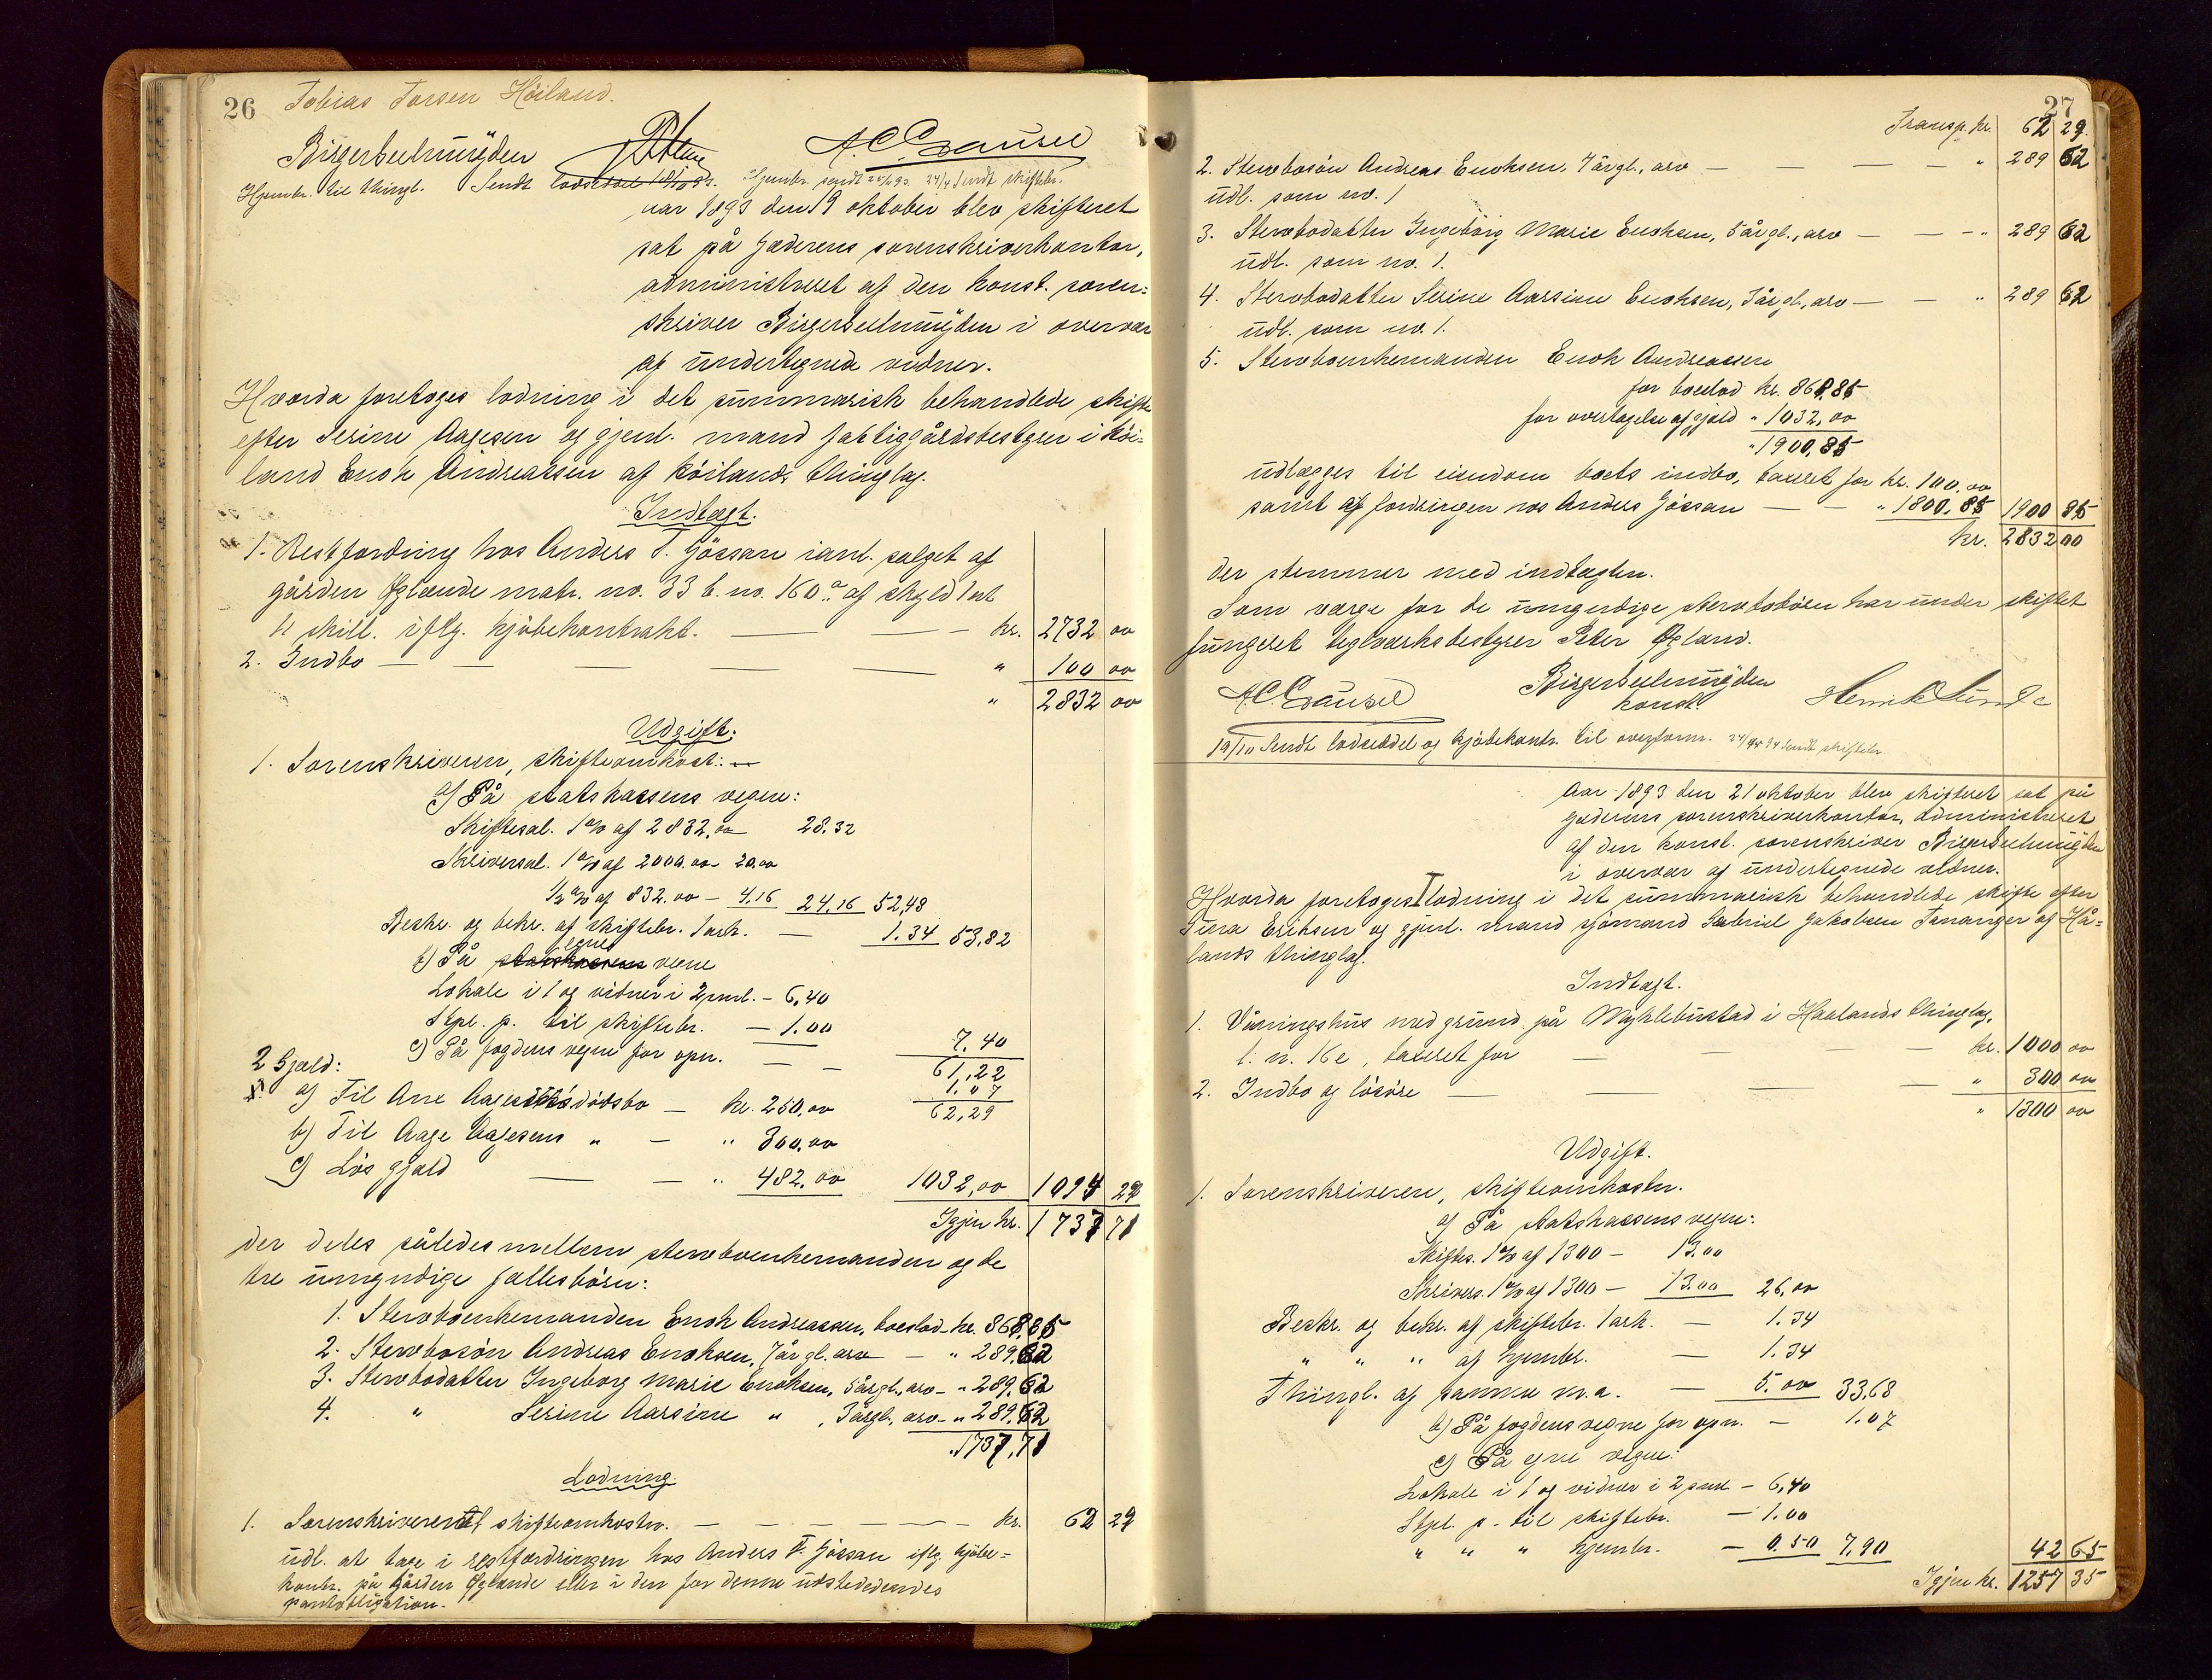 26 Tobias Torsen Höiland.
Birgerbuhrmüyden A. C. Gausel
Hjembr. til thingl. Sendt lodseddel
aar 1893 den 19 oktober blev skifteret
sat på Jæderens sorenskriverkontor,
administreret af den konst. soren-
skriver Birgerbuhrmüyden i overvær
af undertegnede vidner.
Hvorda foretoges lodning i det summarisk behandlede skifte
efter Serine Aagesen og gjenl. mand fattiggårdsbestyrer i Höi-
land Enoh Andreassen af Höilands thinglag.
Indtægt.
1. Restfordring hos Anders T. Jössan i anl. salget af
gården Øglænde matr. no. 33 l. no. 160 a af skyld 1 ort
11 skill. iflg. kjöbekontrakt. — — kr. 2732 00
2. Indbo — — — — — " 100 00
" 2832 00
Udgift.
1. Sorenskriveren, skifteomkost.: —
a) På statskassens vegne:
Skiftesal. 1 % af 2832,00 28.32
Skriversal. 1 % af 2000.00 20.00
1/2 % af 832.00 – 4,16 24,16 52,48
Beskr. og bekr. af skiftebr. 1 ark. — 1.34 53,82
b) På statskassens egne vegne
Lokale i 1 og vidner i 2 saml. – 6,40
Stpl. p. til skiftebr. — 1.00
7.40
c) På fogdens vegne for opn. — —
61,22
1.07
62,29
2 Gjæld:
a) Til Ane Aagesens dödsbo — kr. 250,00
b) Til Aage Aagesens " — " 300,00
c) Lös gjæld — — " 482.00 1032,00 1094 29
Igjen kr. 1737 71
der deles således mellem stervboenkemanden og de
tre umyndige fællesbörn:
1. Stervboenkemanden Enoh Andreassen, boeslod – kr. 868,85
2. Stervbosön Andreas Enohsen, 7 år gl. arv — " 289,62
3. Stervbodatter Ingeborg Marie Enohsen, 5 år gl., arv – " 289,62
4. " Serine Aarsine " , 3 år gl., arv – " 289,62
" 1737,71
Lodning.
1. Sorenskriveren skifteomkostn. — — — — kr. 62 29
udl. at tage i restfordringen hos Anders T. Jössan iflg. kjöbe-
kontr. på gården Øglænde eller i den for denne udstededendes
pantobligation.
27
Transp. kr. 62 29.
2. Stervbosön Andreas Enohsen, 7 år gl., arv — — — " 289 62
udl. som no. 1
3. Stervbodatter Ingeborg Marie Enohsen, 5 år gl., arv — — " 289 62
udl. som no. 1.
4. Stervbodatter Serine Aarsine Enohsen, 3 år gl., arv — — " 289 62
udl. som no. 1.
5. Stervboenkemanden Enoh Andreassen
for boeslod kr. 868,85
for overtagelse af gjæld " 1032,00
" 1900,85
udlægges til eiendom boets indbo, taxeret for kr. 100,00
samt af fordringen hos Anders Jössan — — " 1800,85 1900 85
kr. 2832 00
der stemmer med indtægten.
Som værge for de umyndige stervbobörn har under skiftet
fungeret teglværksbestyrer Peter Øgland.
A. C. Gausel Birgerbuhrmüyden Henrik Lunde
konst.
19/10 Sendt lodseddel og kjöbekontr. til overform. 24/4 94 Sendt skiftebr.
Aar 1893 den 21 oktober blev skifteret sat på
Jæderens sorenskriverkontor, administreret
af den konst. sorenskriver Birgerbuhrmüyden
i overvær af undertegnede vidner.
Hvorda foretoges lodning i det summarisk behandlede skifte efter
Tina Eriksen og gjenl. mand sjömand Gabriel Jakobsen Tananger af Hå-
lands thinglag.
Indtægt.
1. Våningshus med grund på Myklebustad i Haalands thinglag,
l. n. 16 e, taxeret for — — — kr. 1000 00
2. Indbo og lösöre — — — — " 300 00
" 1300 00
Udgift.
1. Sorenskriveren, skifteomkostn.
a) På statskassens vegne:
Skiftes. 1 % af 1300 – 13.00
Skrivers. 1 % af 1300 – 13.00 26,00
Beskr. og bekr. af skiftebr. 1 ark. — 1.34
" " " af hjembr. — 1.34
Thingl. af samme m.a. — 5.00 33,68
b) På fogdens vegne for opn. — 1.07
c) På egne vegne:
Lokale i 1 og vidner i 2 saml – 6,40
Stpl. p – til skiftebr. – 1.00
" " " hjembr. – 0.50 7,90 42 65
Igjen kr. 1257 35